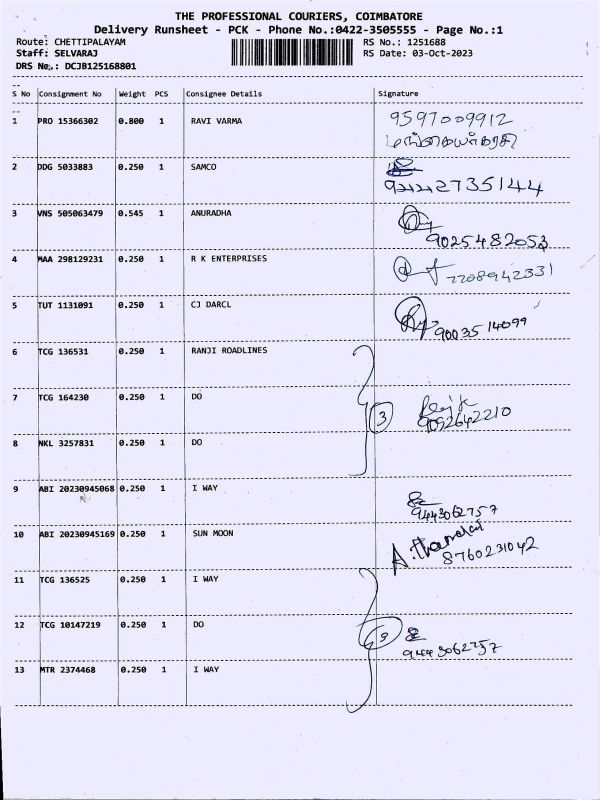 THE PROFESSIONAL COURIERS, COIMBATORE
Delivery Runsheet - PCK - Phone No.:0422-3505555 - Page No.:1
Route: CHETTIPALAYAM RS No.: 1251688
Staff: SELVARAJ RS Date: 03-Oct-2023
DRS No.: DCJB125168801
S No Consignment No Weight PCS Consignee Details Signature
1 PRO 15366302 0.800 1 RAVI VARMA 9597009912
மங்கையர்கரசி
2 DDG 5033883 0.250 1 SAMCO
3 VNS 505063479 0.545 1 ANURADHA
9025482053
4 MAA 298129231 0.250 1 R K ENTERPRISES 7708942331
5 TUT 1131091 0.250 1 CJ DARCL
9003514099
6 TCG 136531 0.250 1 RANJI ROADLINES
7 TCG 164230 0.250 1 DO
3 9092642210
8 NKL 3257831 0.250 1 DO
9 ABI 20230945068 0.250 1 I WAY
9443062757
10 ABI 20230945169 0.250 1 SUN MOON
8760231042
11 TCG 136525 0.250 1 I WAY
12 TCG 10147219 0.250 1 DO
9443062757
13 MTR 2374468 0.250 1 I WAY